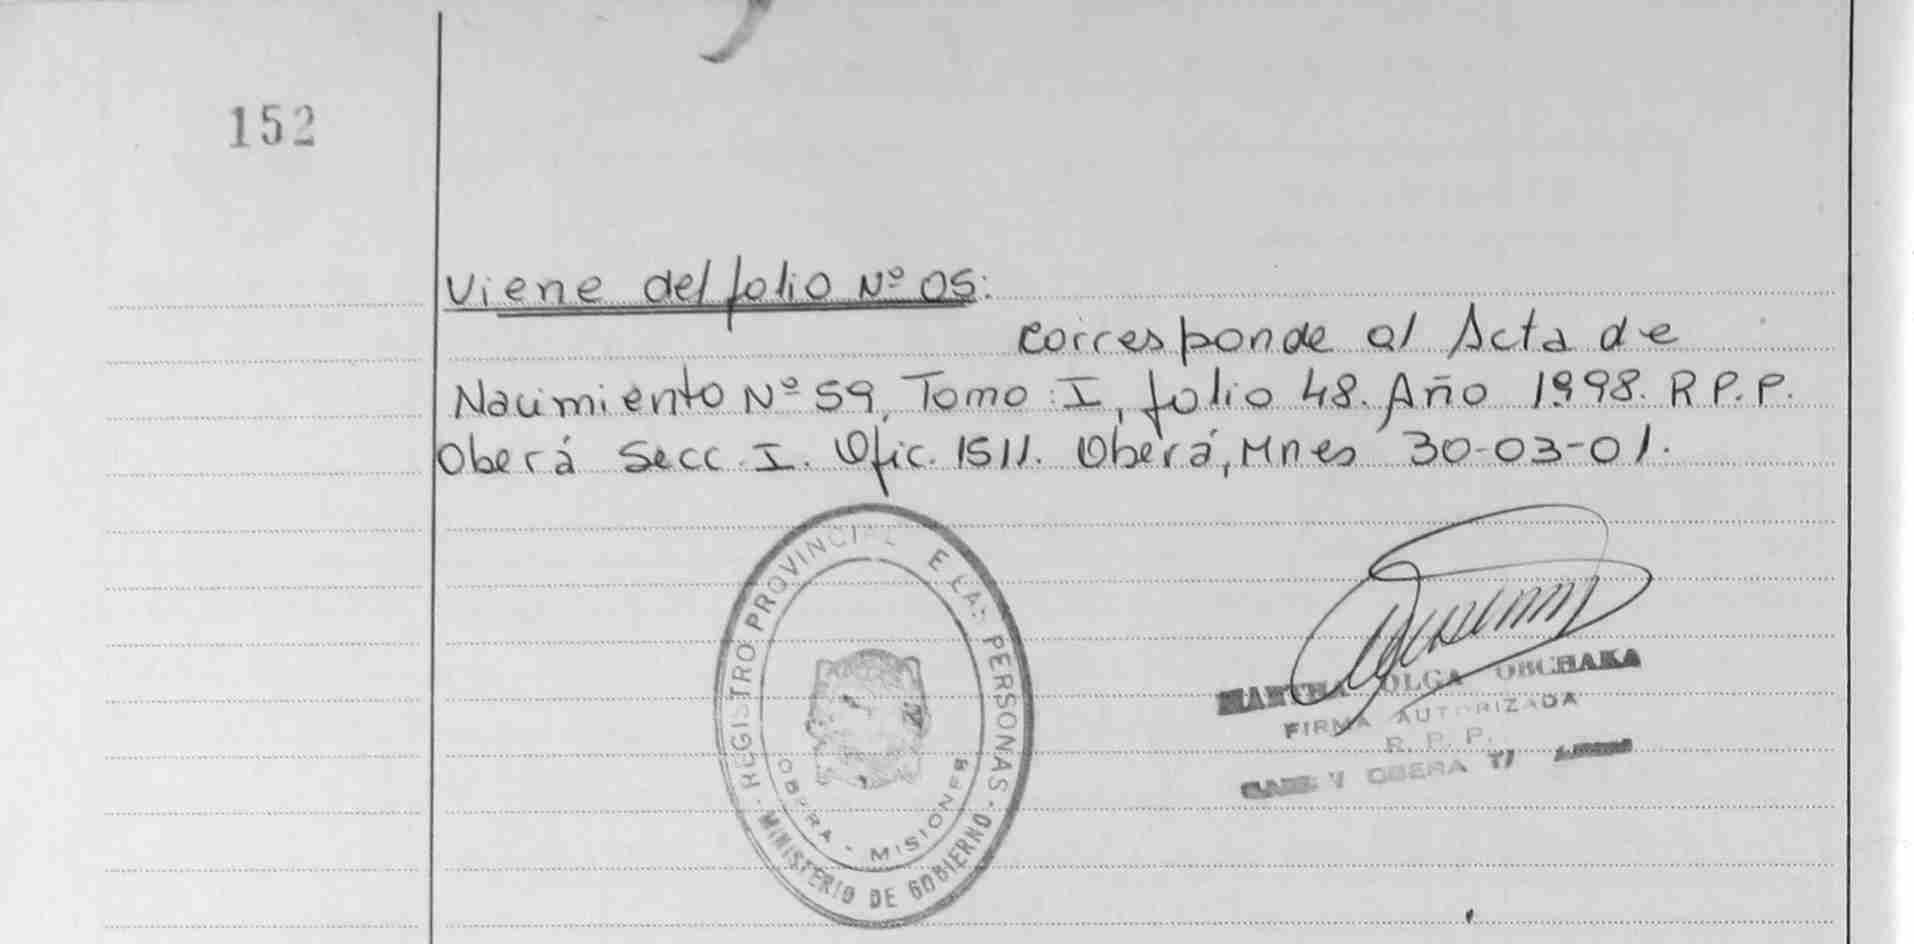 152
Viene del folio Nº 05:
Corresponde al Acta de
Nacimiento Nº 59, Tomo I, folio 48. Año 1998. R.P.P.
Oberá Secc. I. Ofic. 1511. Oberá, Mnes 30-03-01.
REGISTRO PROVINCIAL E LAS PERSONAS
OBERA - MISIONES
MINISTERIO DE GOBIERNO
MARTHA OLGA OBCHAKA
FIRMA AUTORIZADA
R. P. P.
OBERA